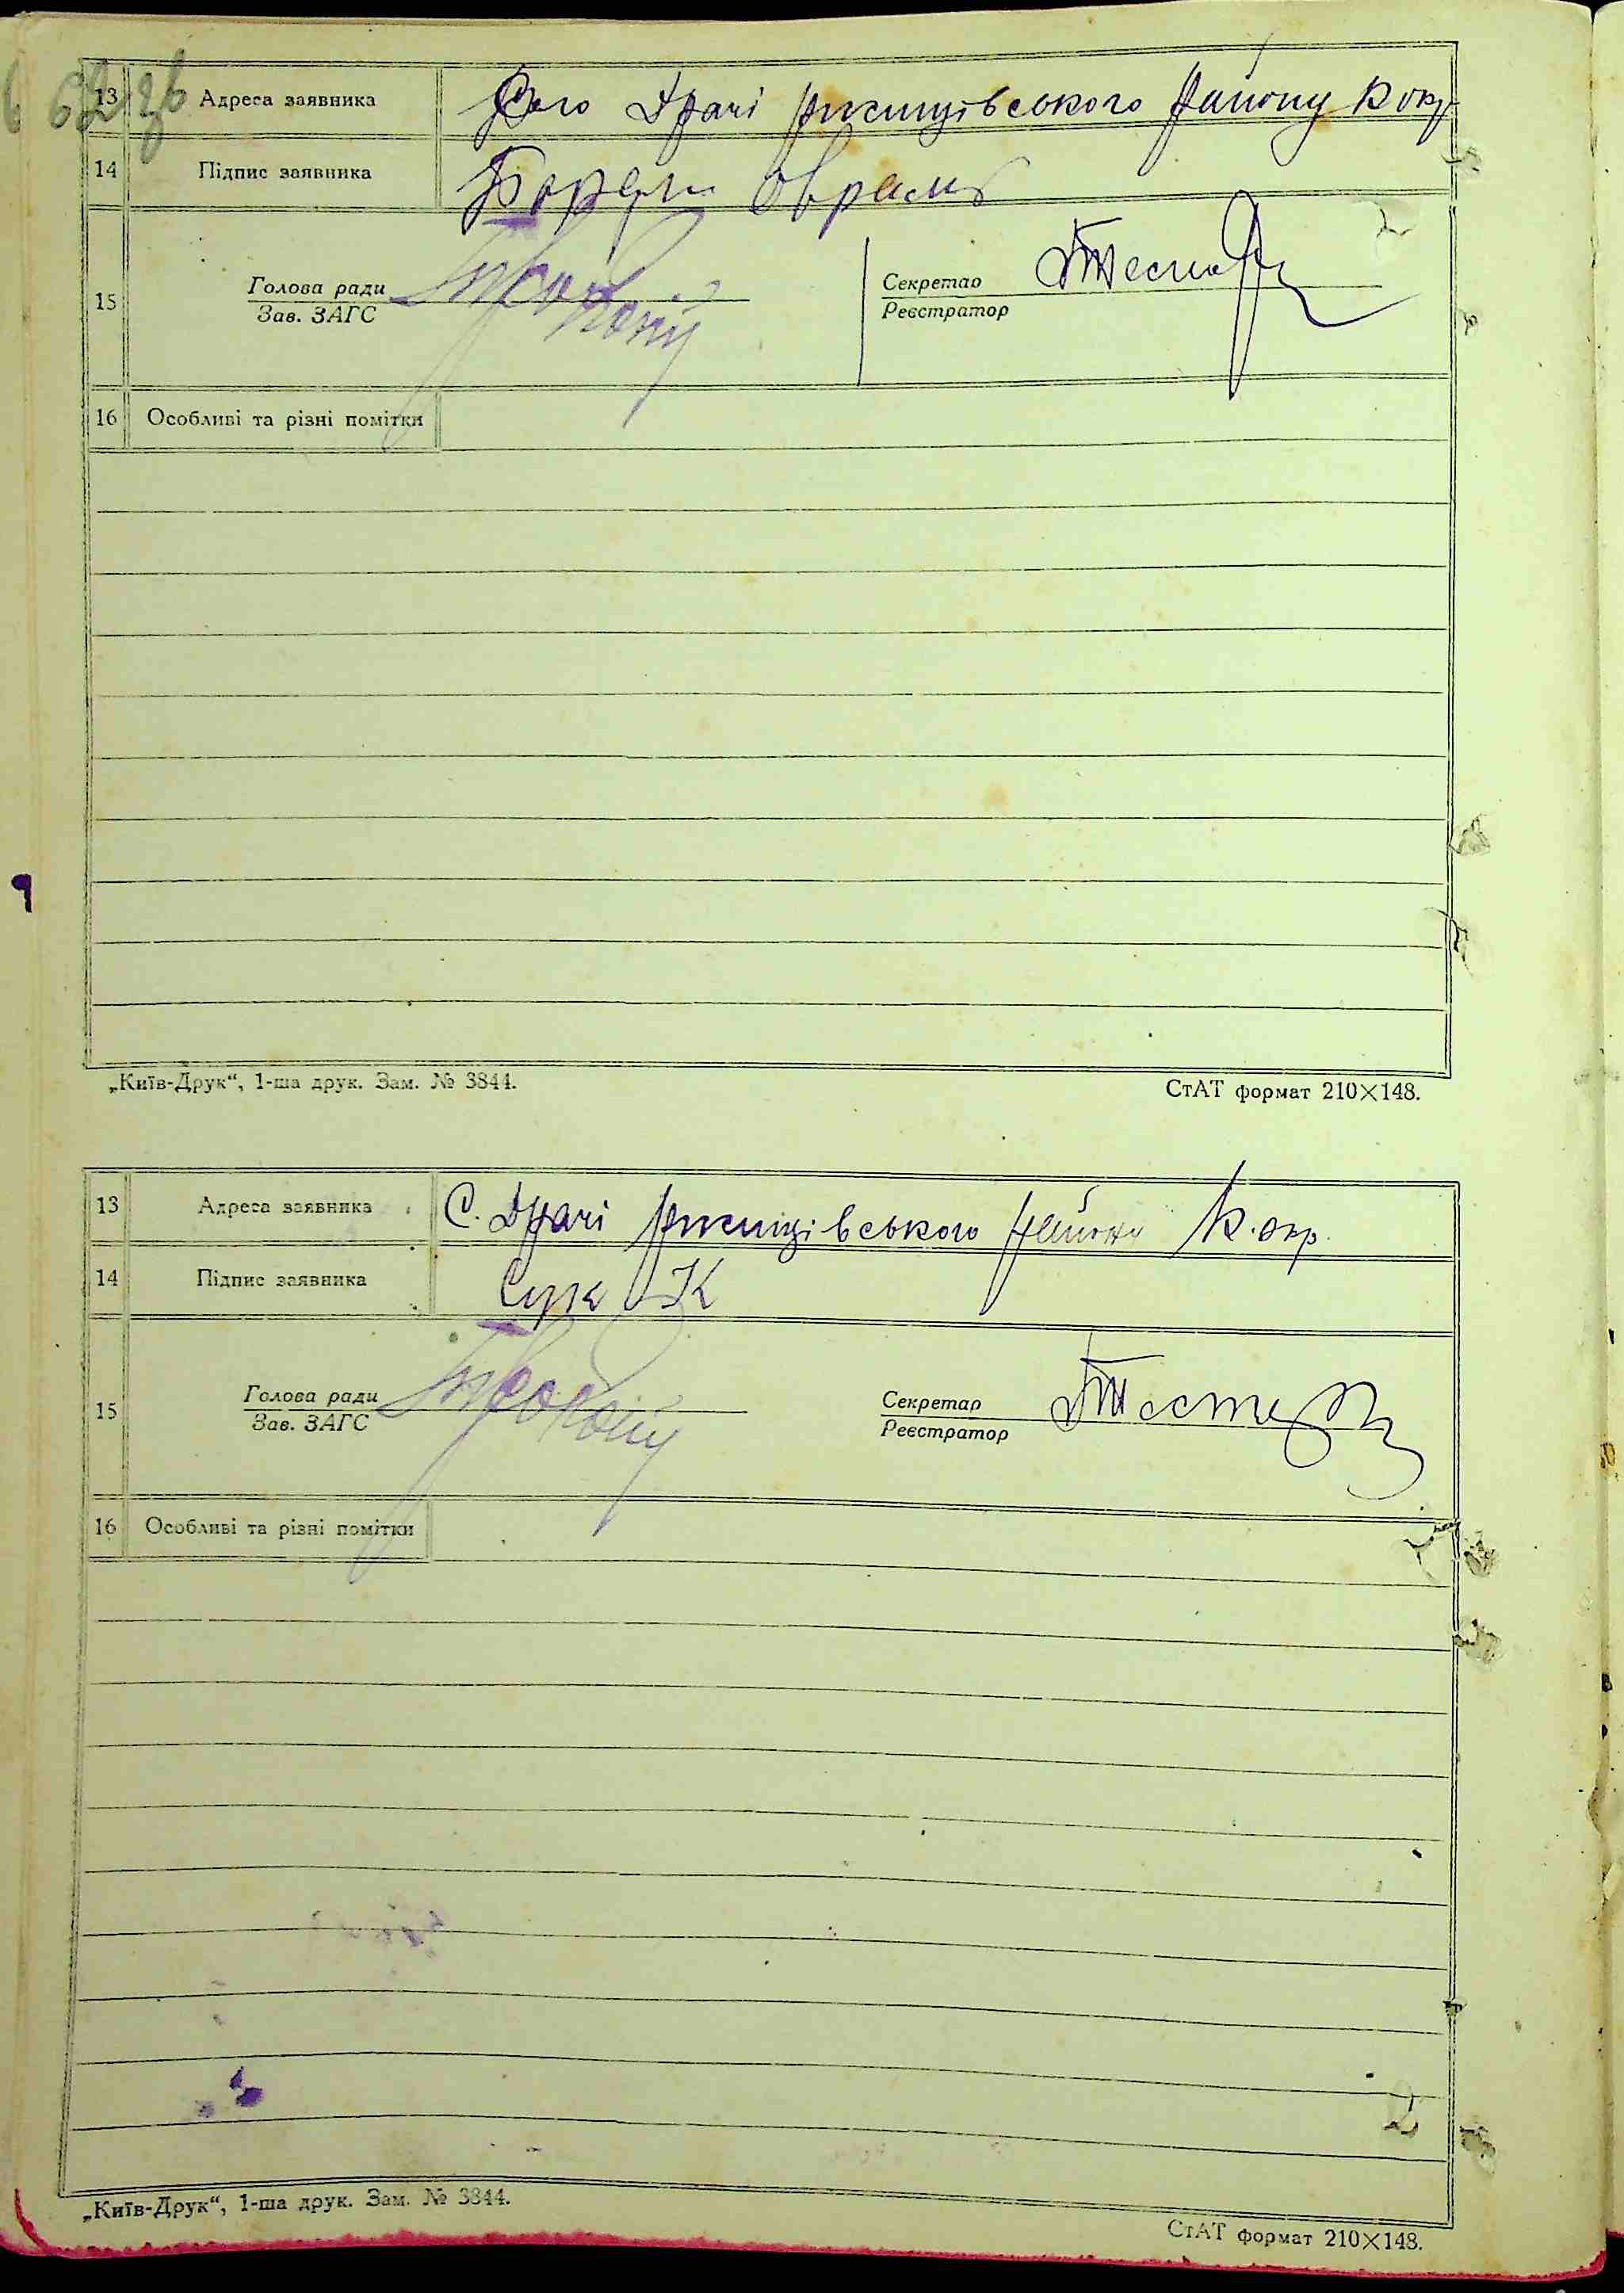 13 Адреса заявника Село Драчі Ржищівського Району К окр
14 Підпис заявника Оврам
15 Голова ради Секретар
Зав. ЗАГС Реєстратор
16 Особливі та різні помітки
„Київ-Друк“, 1-ша друк. Зам. № 3844. СтАТ формат 210×148.
13 Адреса заявника С. Драчі Ржищівського Району К. окр.
14 Підпис заявника Сук К
15 Голова ради Секретар
Зав. ЗАГС Реєстратор
16 Особливі та різні помітки
„Київ-Друк“, 1-ша друк. Зам. № 3844.
СтАТ формат 210×148.